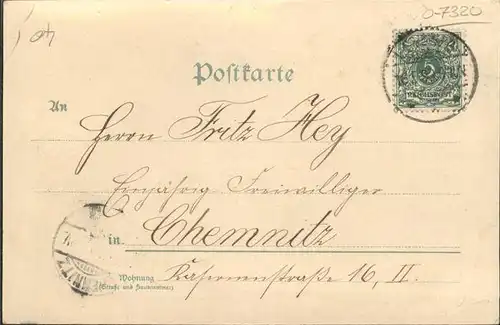 0-7320
Postkarte
5
REICHSPOST
An
Herrn Fritz Hey
Einjährig Freiwilliger
in Chemnitz
Wohnung
(Straße und Hausnummer)
Kasernenstraße 16, II.